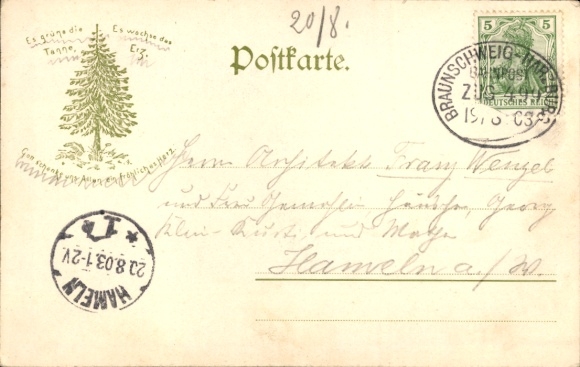 20/8.
Es grüne die Tanne,
Es wachse das Erz,
Gott schenke uns Allen ein fröhliches Herz.
Postkarte.
5 5
DEUTSCHES REICH
BRAUNSCHWEIG-HARZBURG
BAHNPOST
ZUG 499
19/8 03
Herrn Architekt Franz Wenzel
und Frau Gemahlin Georg
Klein Kurti und
Hameln a./W.
HAMELN
20.8.03.1-2V.
* 1